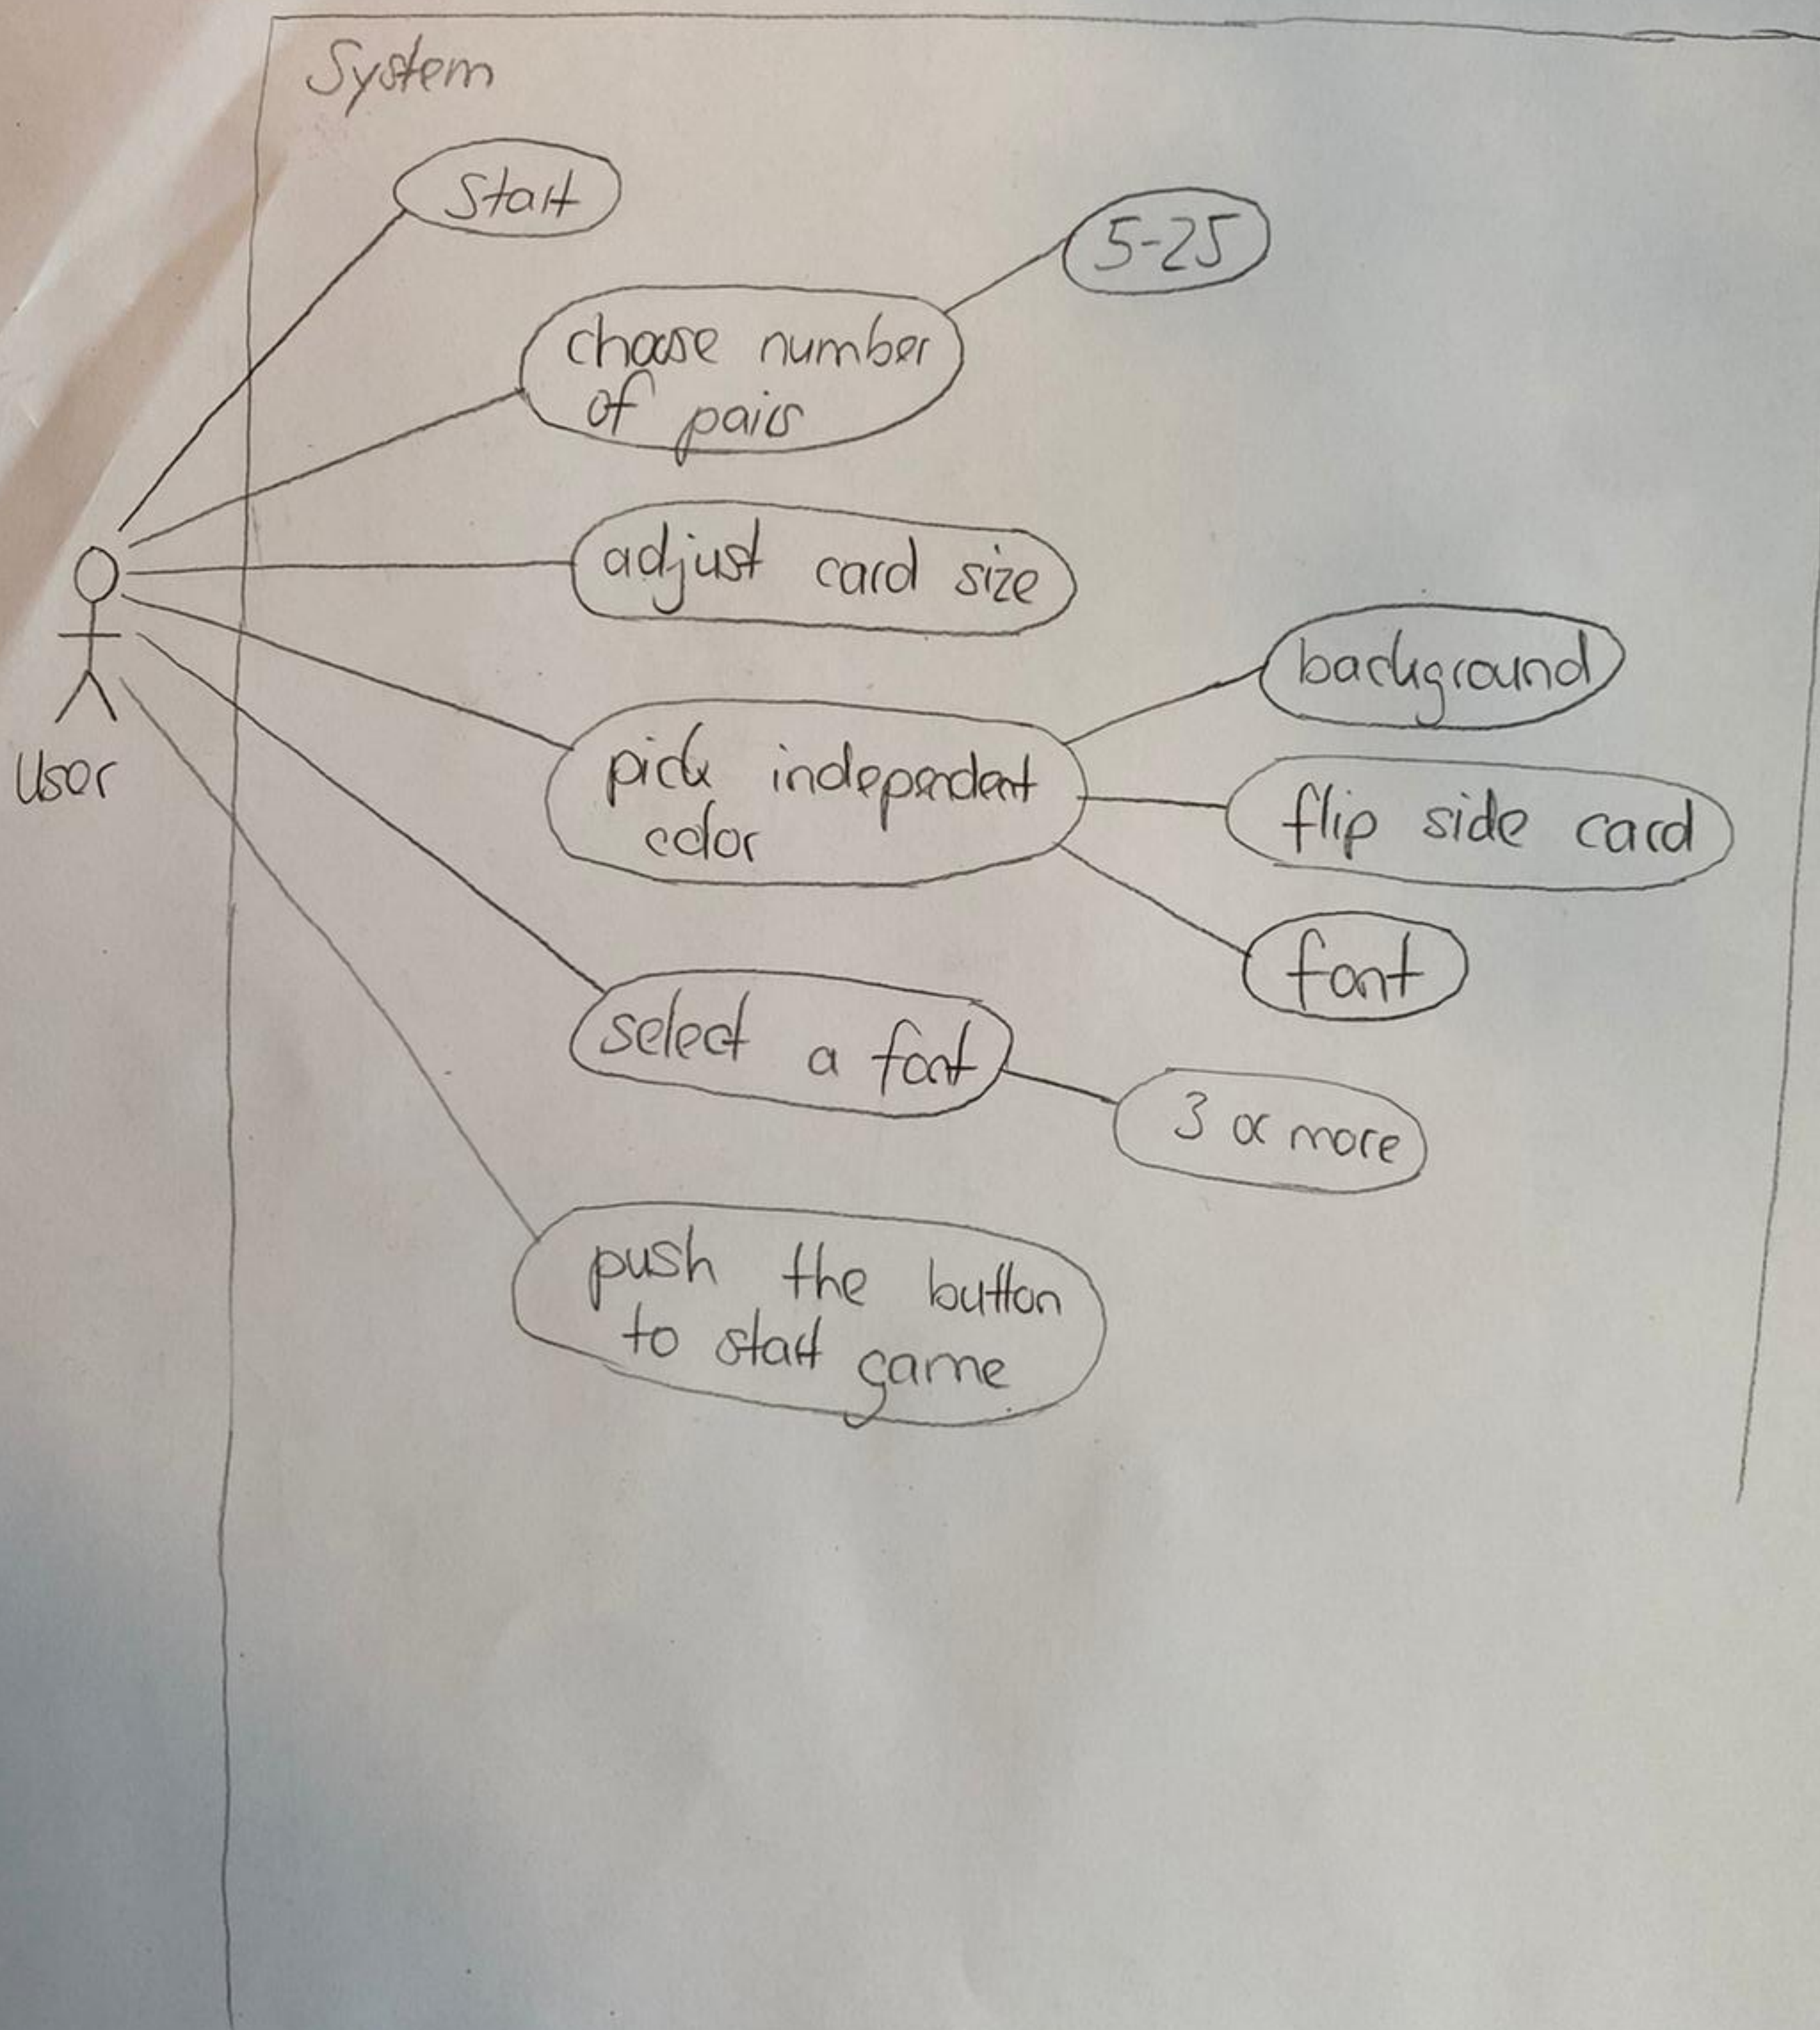 System
Start
5-25
choose number
of pairs
adjust card size
background
pick independent
color
flip side card
font
User
select a font
3 or more
push the button
to start game